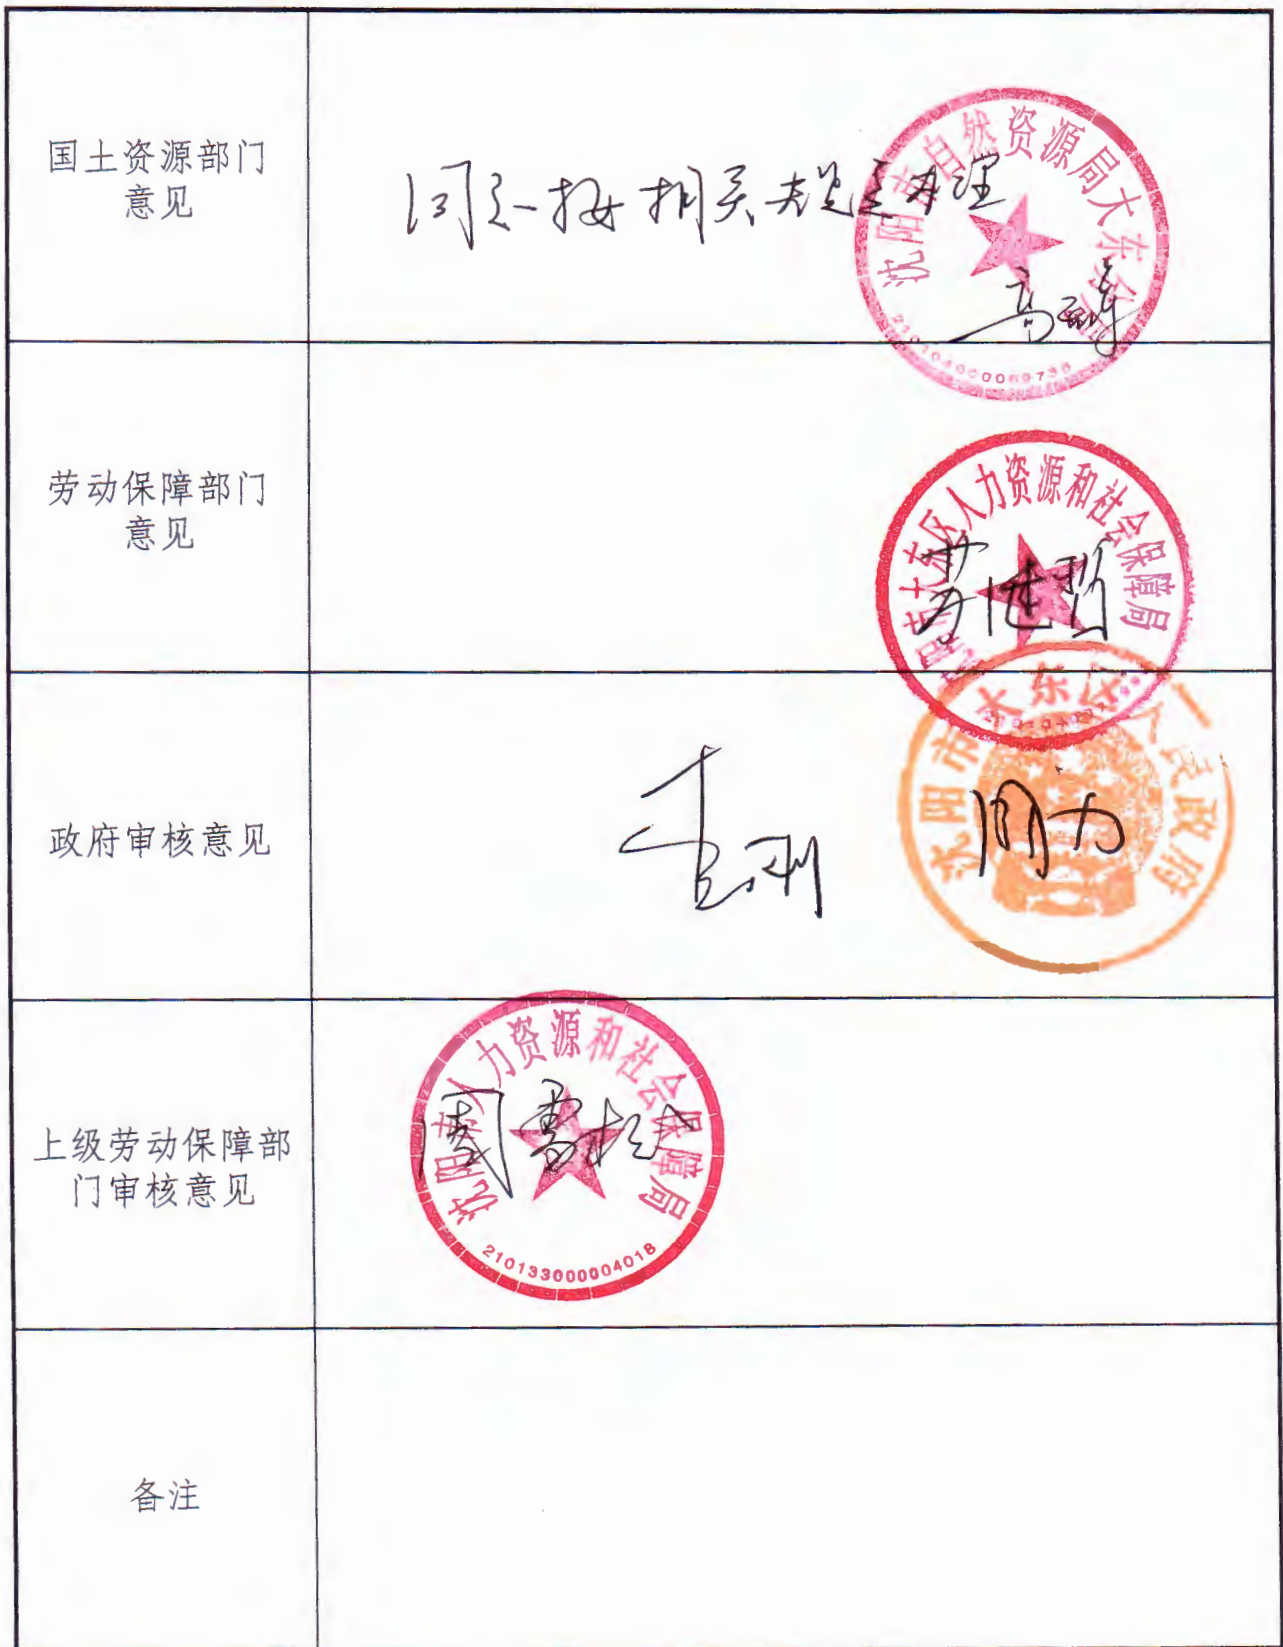 国土资源部门
意见
同意按相关规定办理
沈阳市自然资源局大东分局
劳动保障部门
意见
沈阳市大东区人力资源和社会保障局
政府审核意见
沈阳市大东区人民政府
上级劳动保障部
门审核意见
沈阳市人力资源和社会保障局
210133000004018
备注